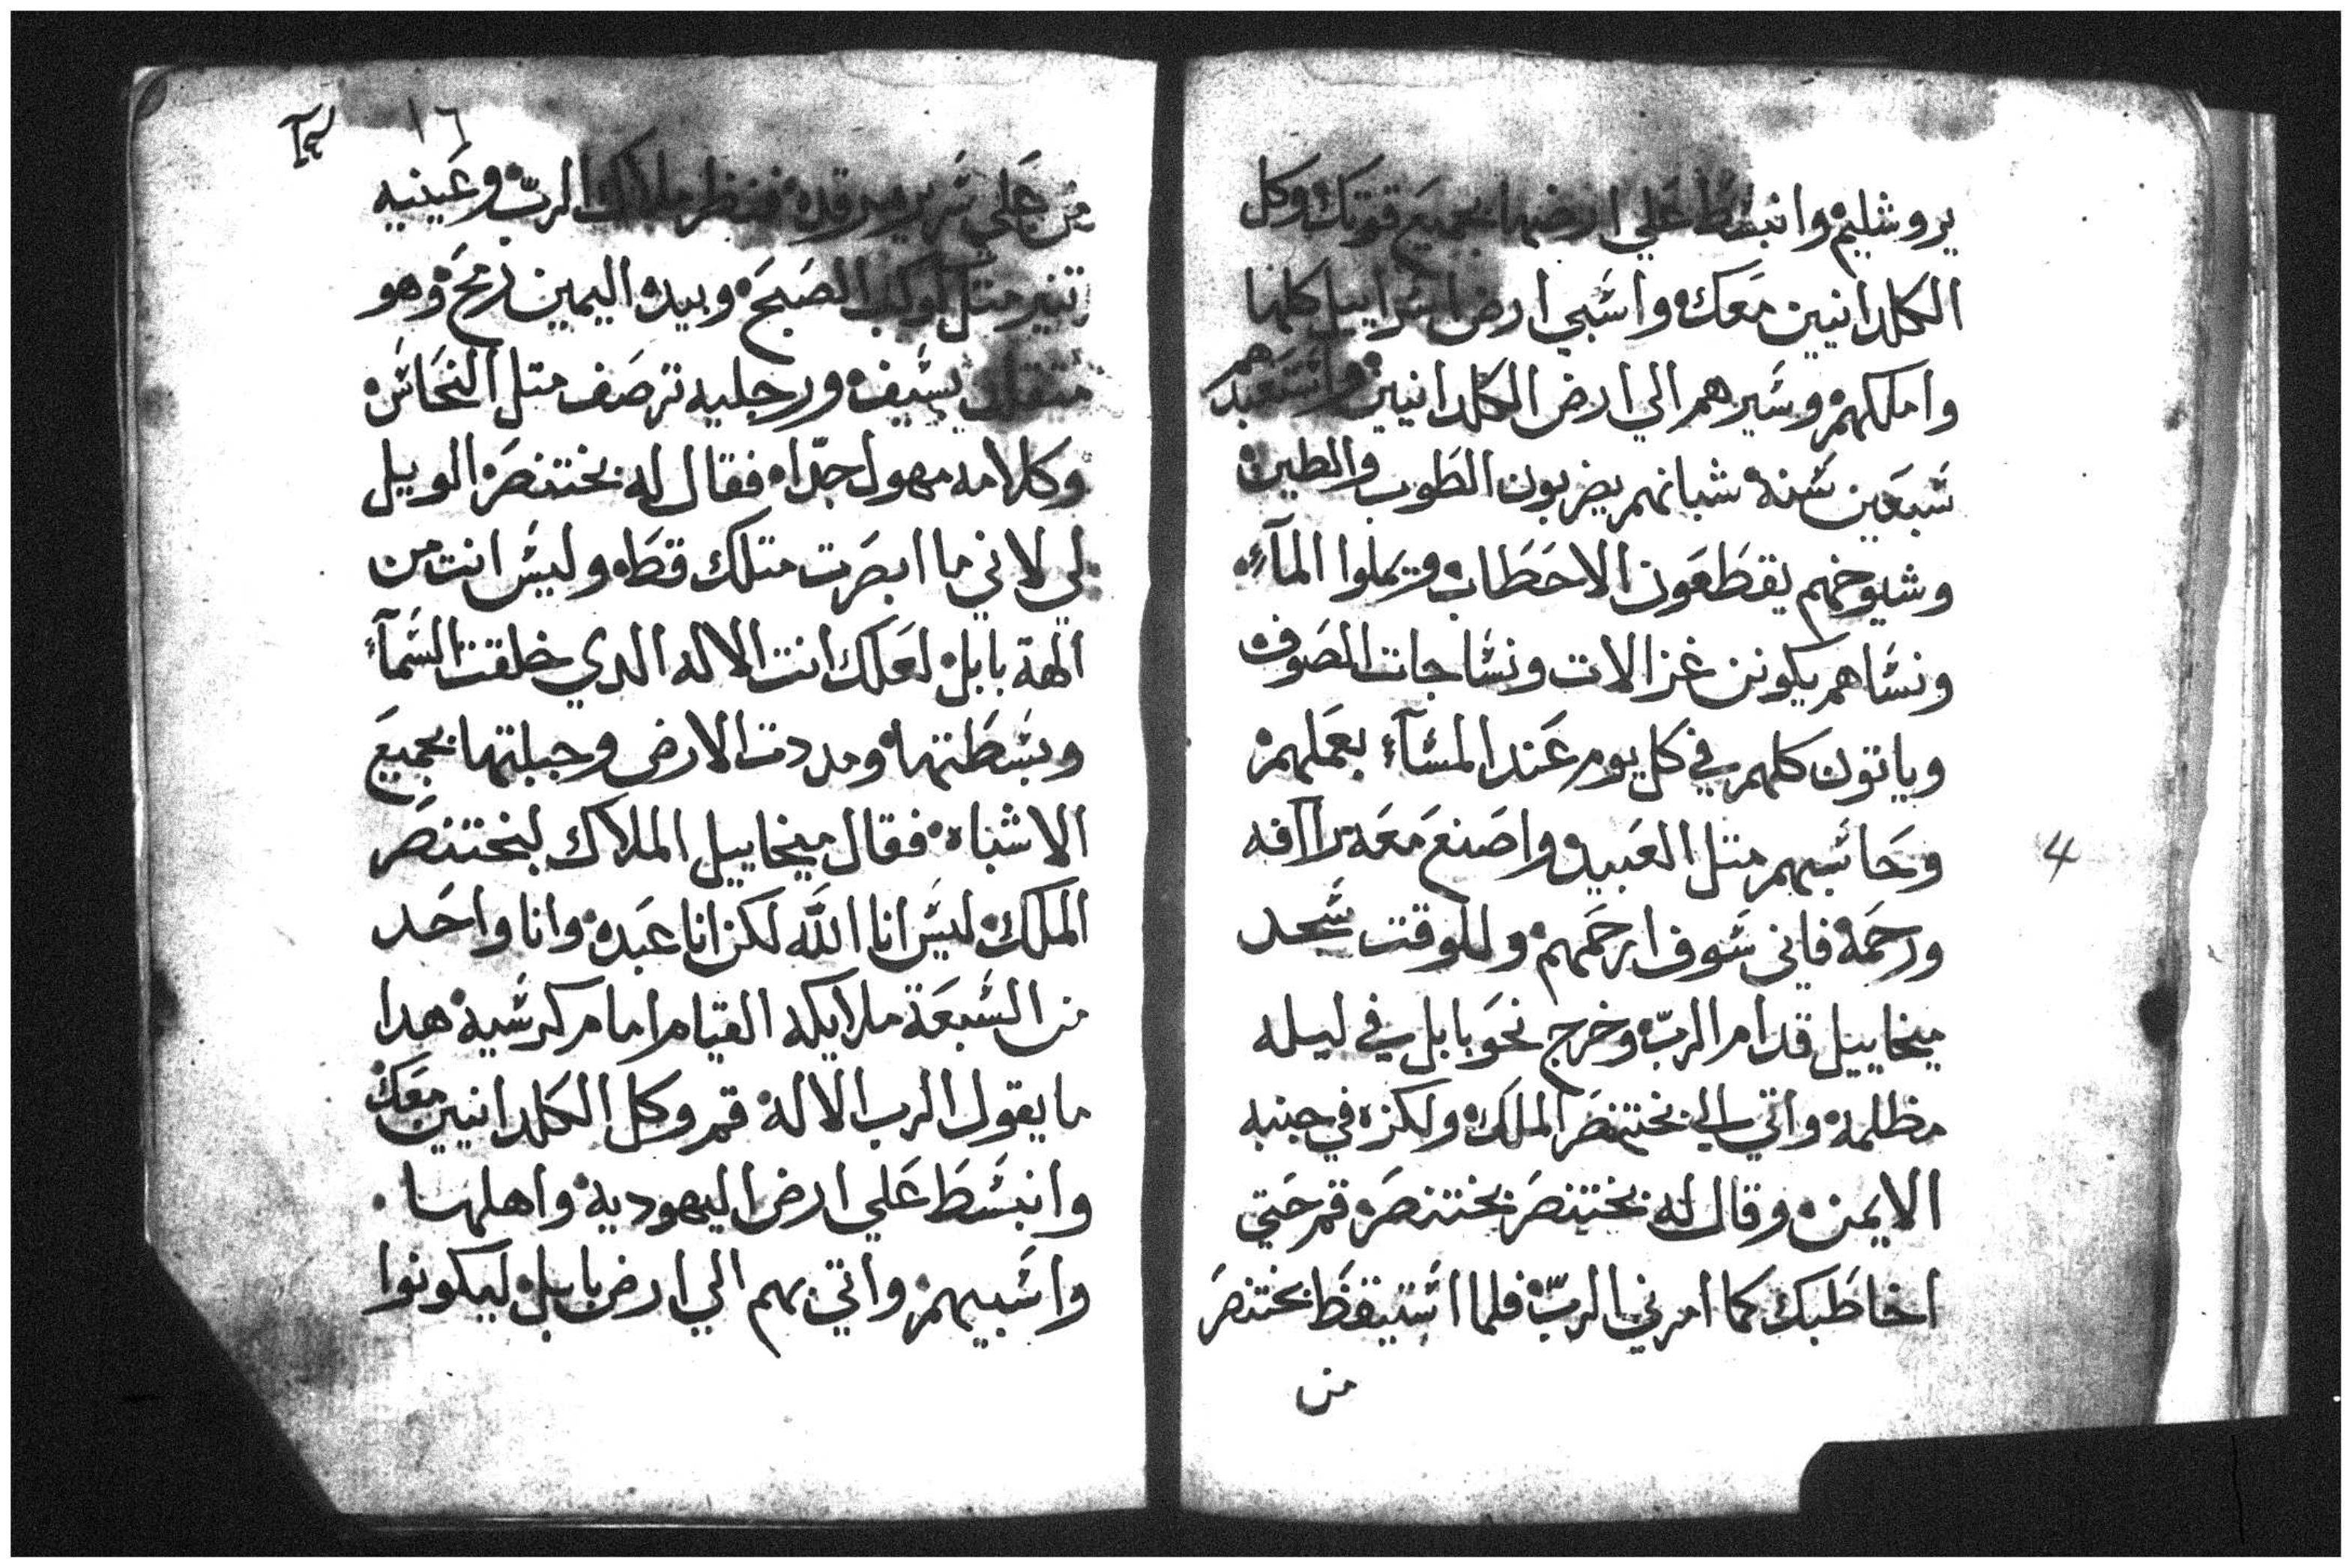 يروشليم وانبسط علي ارضها بجميع قوتك وكل
الكلدانيين معك واسبي ارض اسراييل كلها
واملكهم وسيرهم الي ارض الكلدانيين واستعبدهم
سبعين سنة شبانهم يضربون الطوب والطين
وشيوخهم يقطعون الاحطاب ويملوا المآء
ونساهم يكونن غزالات ونساجات الصوف
وياتون كلهم في كل يوم عند المسآء بعملهم
وحاسبهم متل العبيد واصنع معه براافه
ورحمة فاني سوف ارحمهم وللوقت سجد
ميخاييل قدام الرب وخرج نحو بابل في ليله
مظلمة واتي الي بختنصر الملك ولكزه في جنبه
الايمن وقال له بختنصر بختنصر قم حتي
اخاطبك كما امرني الرب فلما استيقظ بختنصر
من
4
١٦
من علي سرير مرقده فنظر ملاك الرب وعينيه
تنير متل كوكب الصبح وبيده اليمين رمح وهو
متقلد بسيف ورجليه ترصف متل النحاس
وكلامه مهول جدا فقال له بختنصر الويل
لي لاني ما ابصرت متلك قط وليس انت من
الهة بابل لعلك انت الاله الدي خلقت السمآء
وبسطتها ومددت الارض وجبلتها بجميع
الاشباه فقال ميخاييل الملاك لبختنصر
الملك ليس انا الله لكن انا عبده وانا واحد
من السبعة ملايكه القيام امام كرسيه هدا
ما يقول الرب الاله قم وكل الكلدانيين معك
وانبسط علي ارض اليهودية واهلها
واسبيهم واتي بهم الي ارض بابل ليكونوا